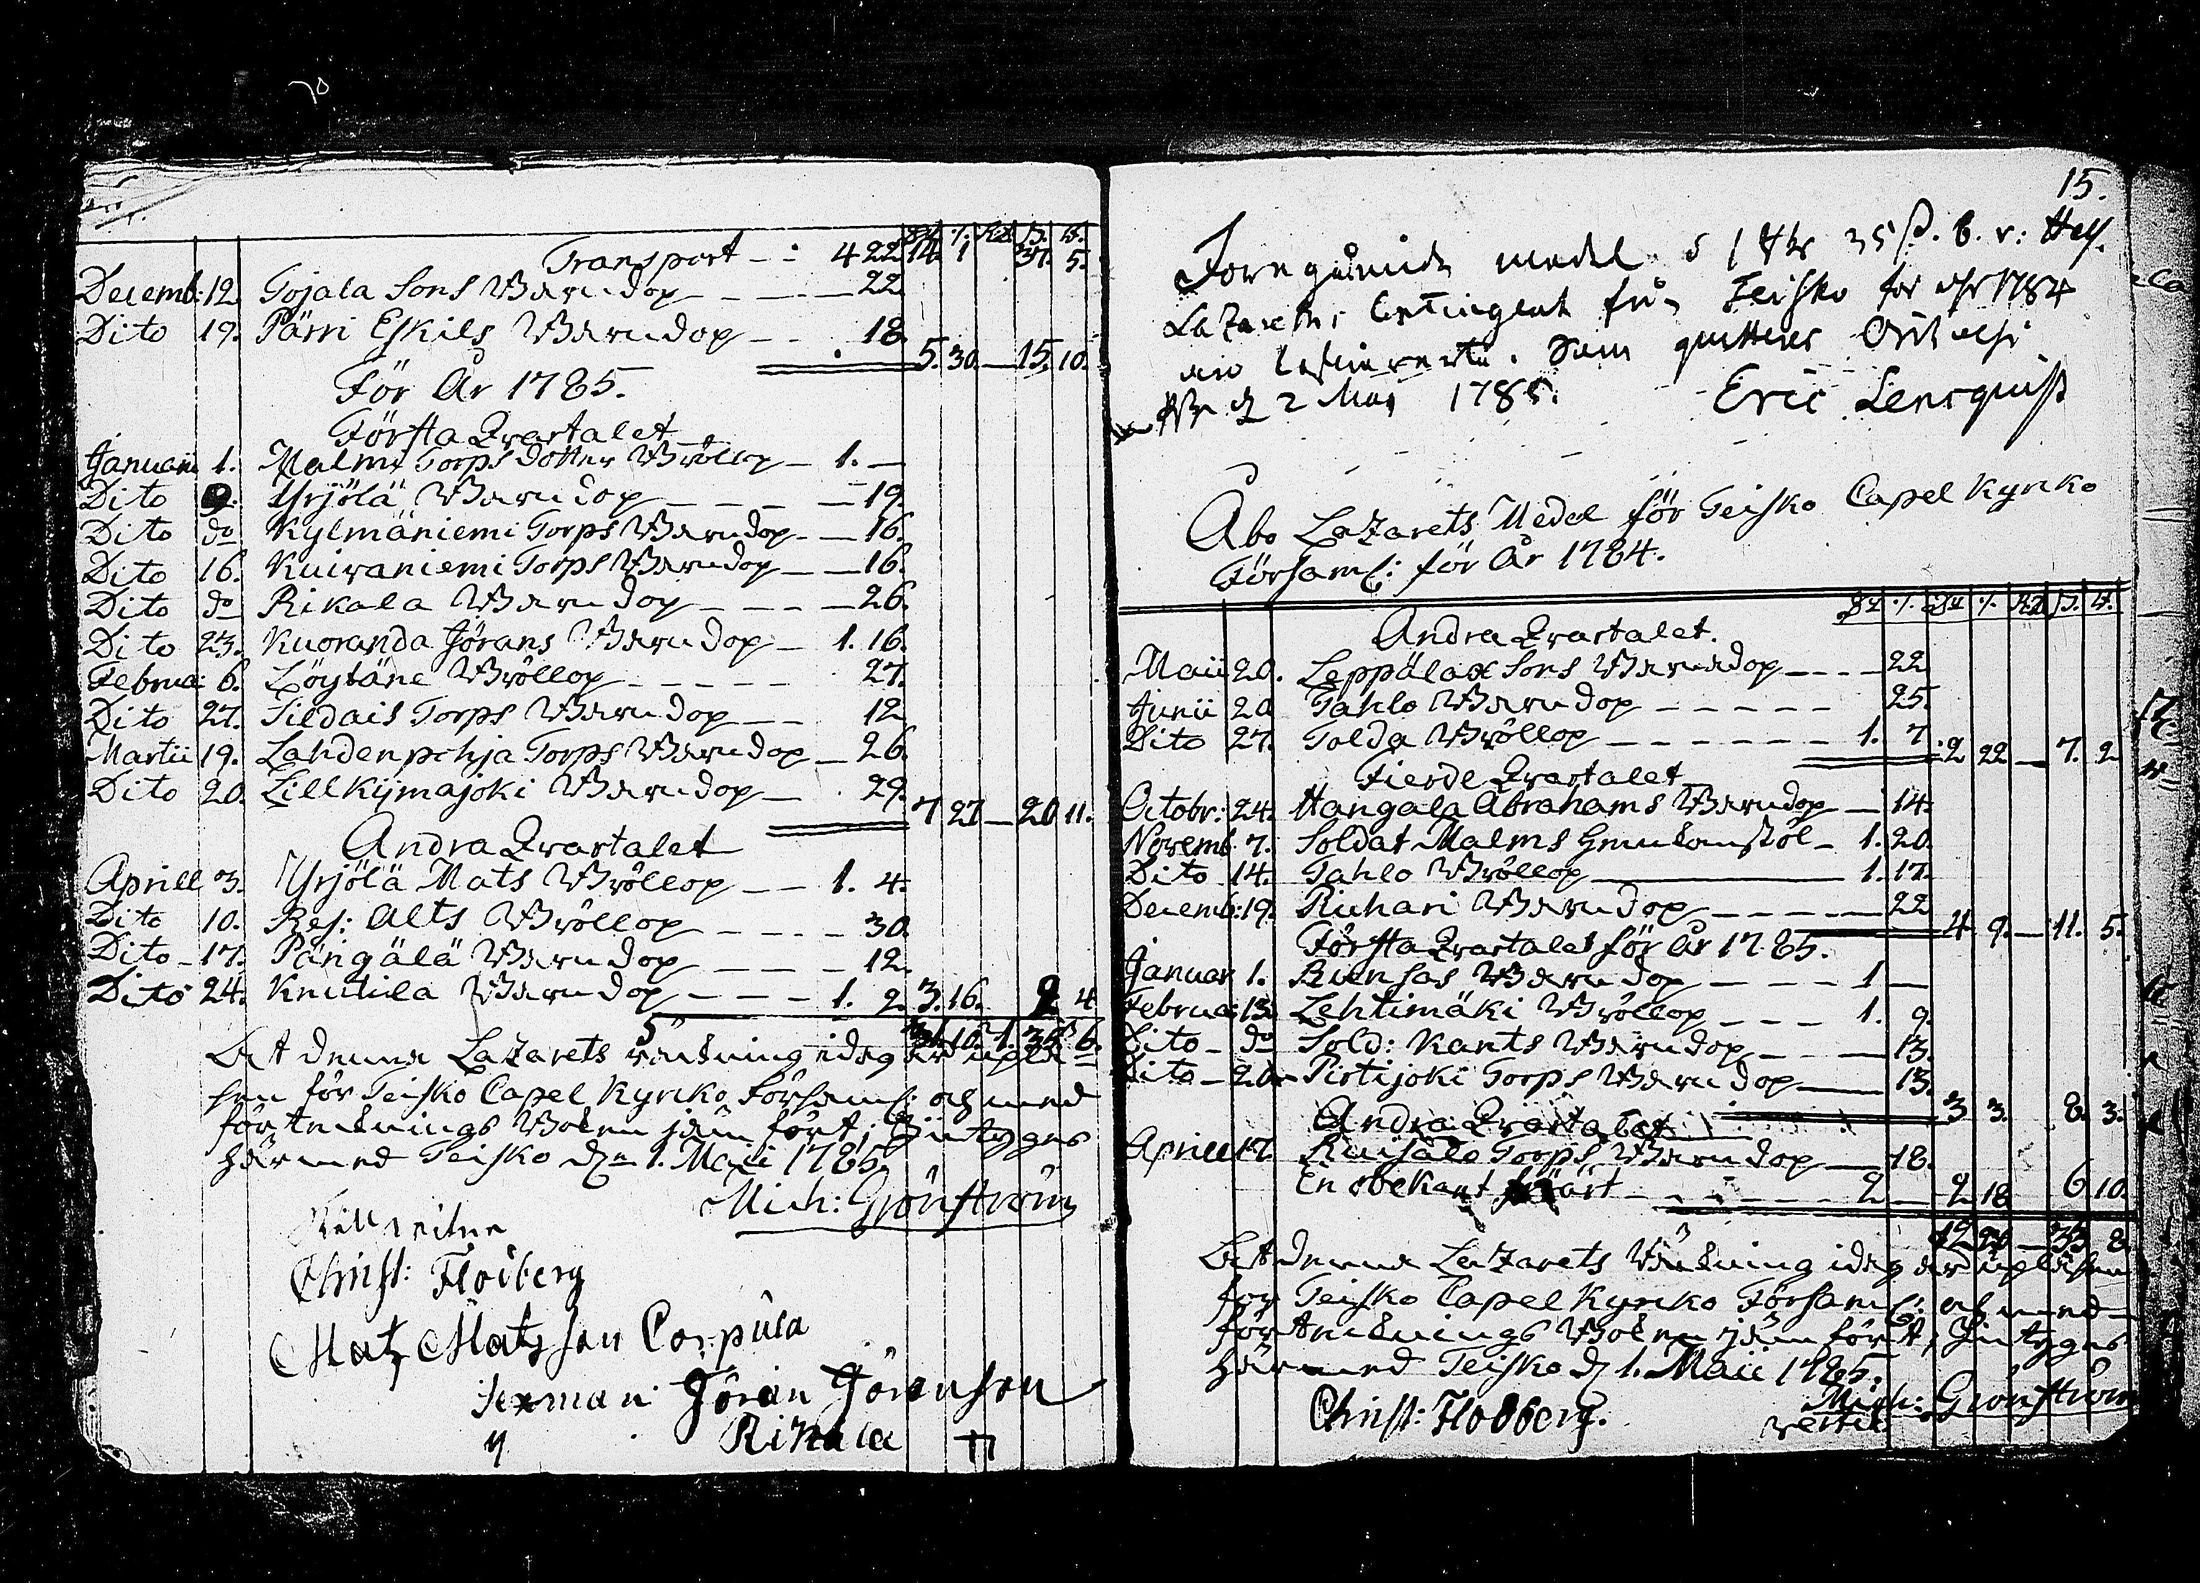 Transport - - 4 22 14. 1 37. 5.
Decemb: 12 Tojala Sons Barndop - - - 22
Dito 19. Pärri Eskils Barndop - - 18
5. 30. — 15. 10.
För År 1785.
Första Qvartalet
Januarii 1. Malmi Torps dotters Bröllop - 1. —
Dito 9. Yrjölä Barndop - - - - 19.
Dito do Kylmäniemi Torps Barndop - - 16.
Dito 16. Kuivaniemi Torps Barndop - - 16.
Dito do Rikala Barndop - - - - 26.
Dito 23. Kuoranda Jörans Barndop - 1. 16.
Februa: 6. Löytäne Bröllop - - - - - 27.
Dito 27. Sildais Torps Barndop - - 12
Martii 19. Lahdenpohja Torps Barndop - 26.
Dito 20. Lillkijmajoki Barndop - 29.
7 27 — 20 11.
Andra Qvartalet
Aprill 3. Yrjölä Mats Bröllop - - 1. 4.
Dito 10. Res: Alts Bröllop - - - - 30.
Dito - 17. Pängälä Barndop - - - - 12.
Dito 24. Knutila Barndop - - - - 1. 2. 3. 16. 9 4
Lazarets räkning idag är uplä-
sen för Teisko Capel Kyrko Församl: och med
förteknings Boken jämförd, Intygas
härmed Teisko d. 1. Maii 1785.
Mich: Grönström
Christ: Floiberg
Matz Matsson Corpula
Sexman Jöran Jöranson
Rikala
15.
Föregående medel
Lazaretts Contingent från Teisko för åhr 1784
Som qvitteras
d 2 Maj 1785. Eric Lencquist
Åbo Lazarets Medel för Teisko Capel Kyrko
Församl: för År 1784.
Andra Qvartalet.
Maii 20. Leppälax Sons Barndop - - - - 22
Junii 20 Tahlo Barndop - - - - - 25.
Dito 27. Tolda Bröllop - - - - - - 1. 7
2 22 — 7. 2
Fierde Qvartalet
Octobr: 24. Hangala Abrahams Barndop - 14.
Novemb 7. Soldat Malms Grafvöl - 1. 20.
Dito 14. Tahlo Bröllop — 1. 17.
Decemb: 19. Riuhari Barndop - - - - - 22
4 9. — 11. 5.
Första Qvartalet för År 1785.
Januar 1. Ruensas Barndop - - - - 1 —
Februa: 13. Lehtimäki Bröllop - - - 1. 9.
Dito - do Sold: Kants Barndop - - - 13.
Dito - 20. Pirtijoki Torps Barndop — 13.
3 3. 8. 3.
Andra Qvartalet
Aprill 17. Torps Barndop — 18.
En obekant - - - - - - 2 — 2 18 6 10.
12 20 — 33 8
Lazarets Räkning idag är upläsen
för Teisko Capel Kyrko Församl: och med
förteknings Boken jämförd, Intygas
härmed Teisko d. 1. Maii 1785.
Mich: Grönström
Christ: Flodberg.
vertit